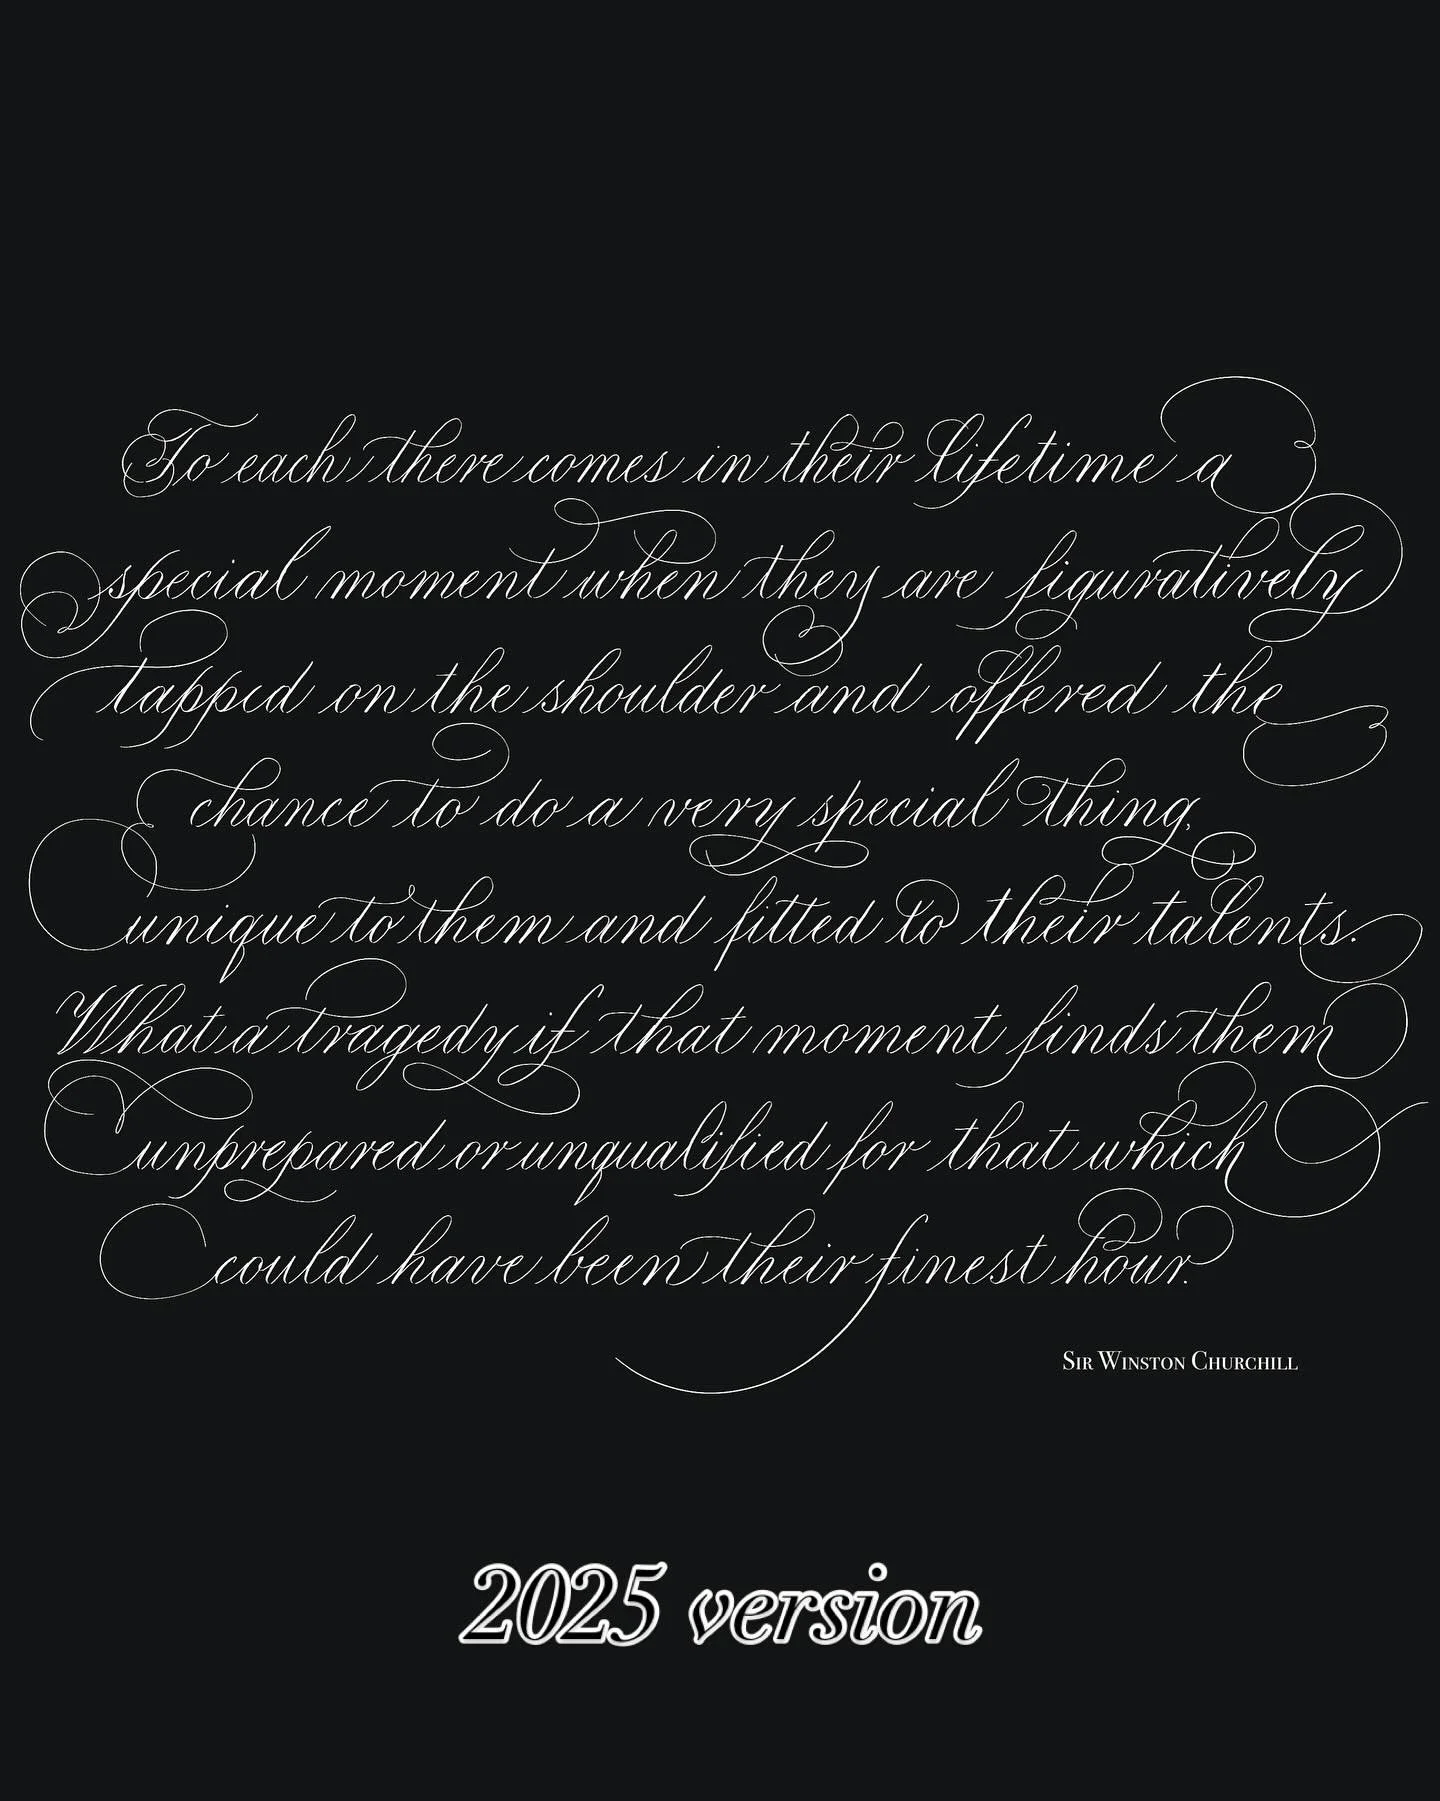 To each there comes in their lifetime a
special moment when they are figuratively
tapped on the shoulder and offered the
chance to do a very special thing,
unique to them and fitted to their talents.
What a tragedy if that moment finds them
unprepared or unqualified for that which
could have been their finest hour.
Sir Winston Churchill
2025 version